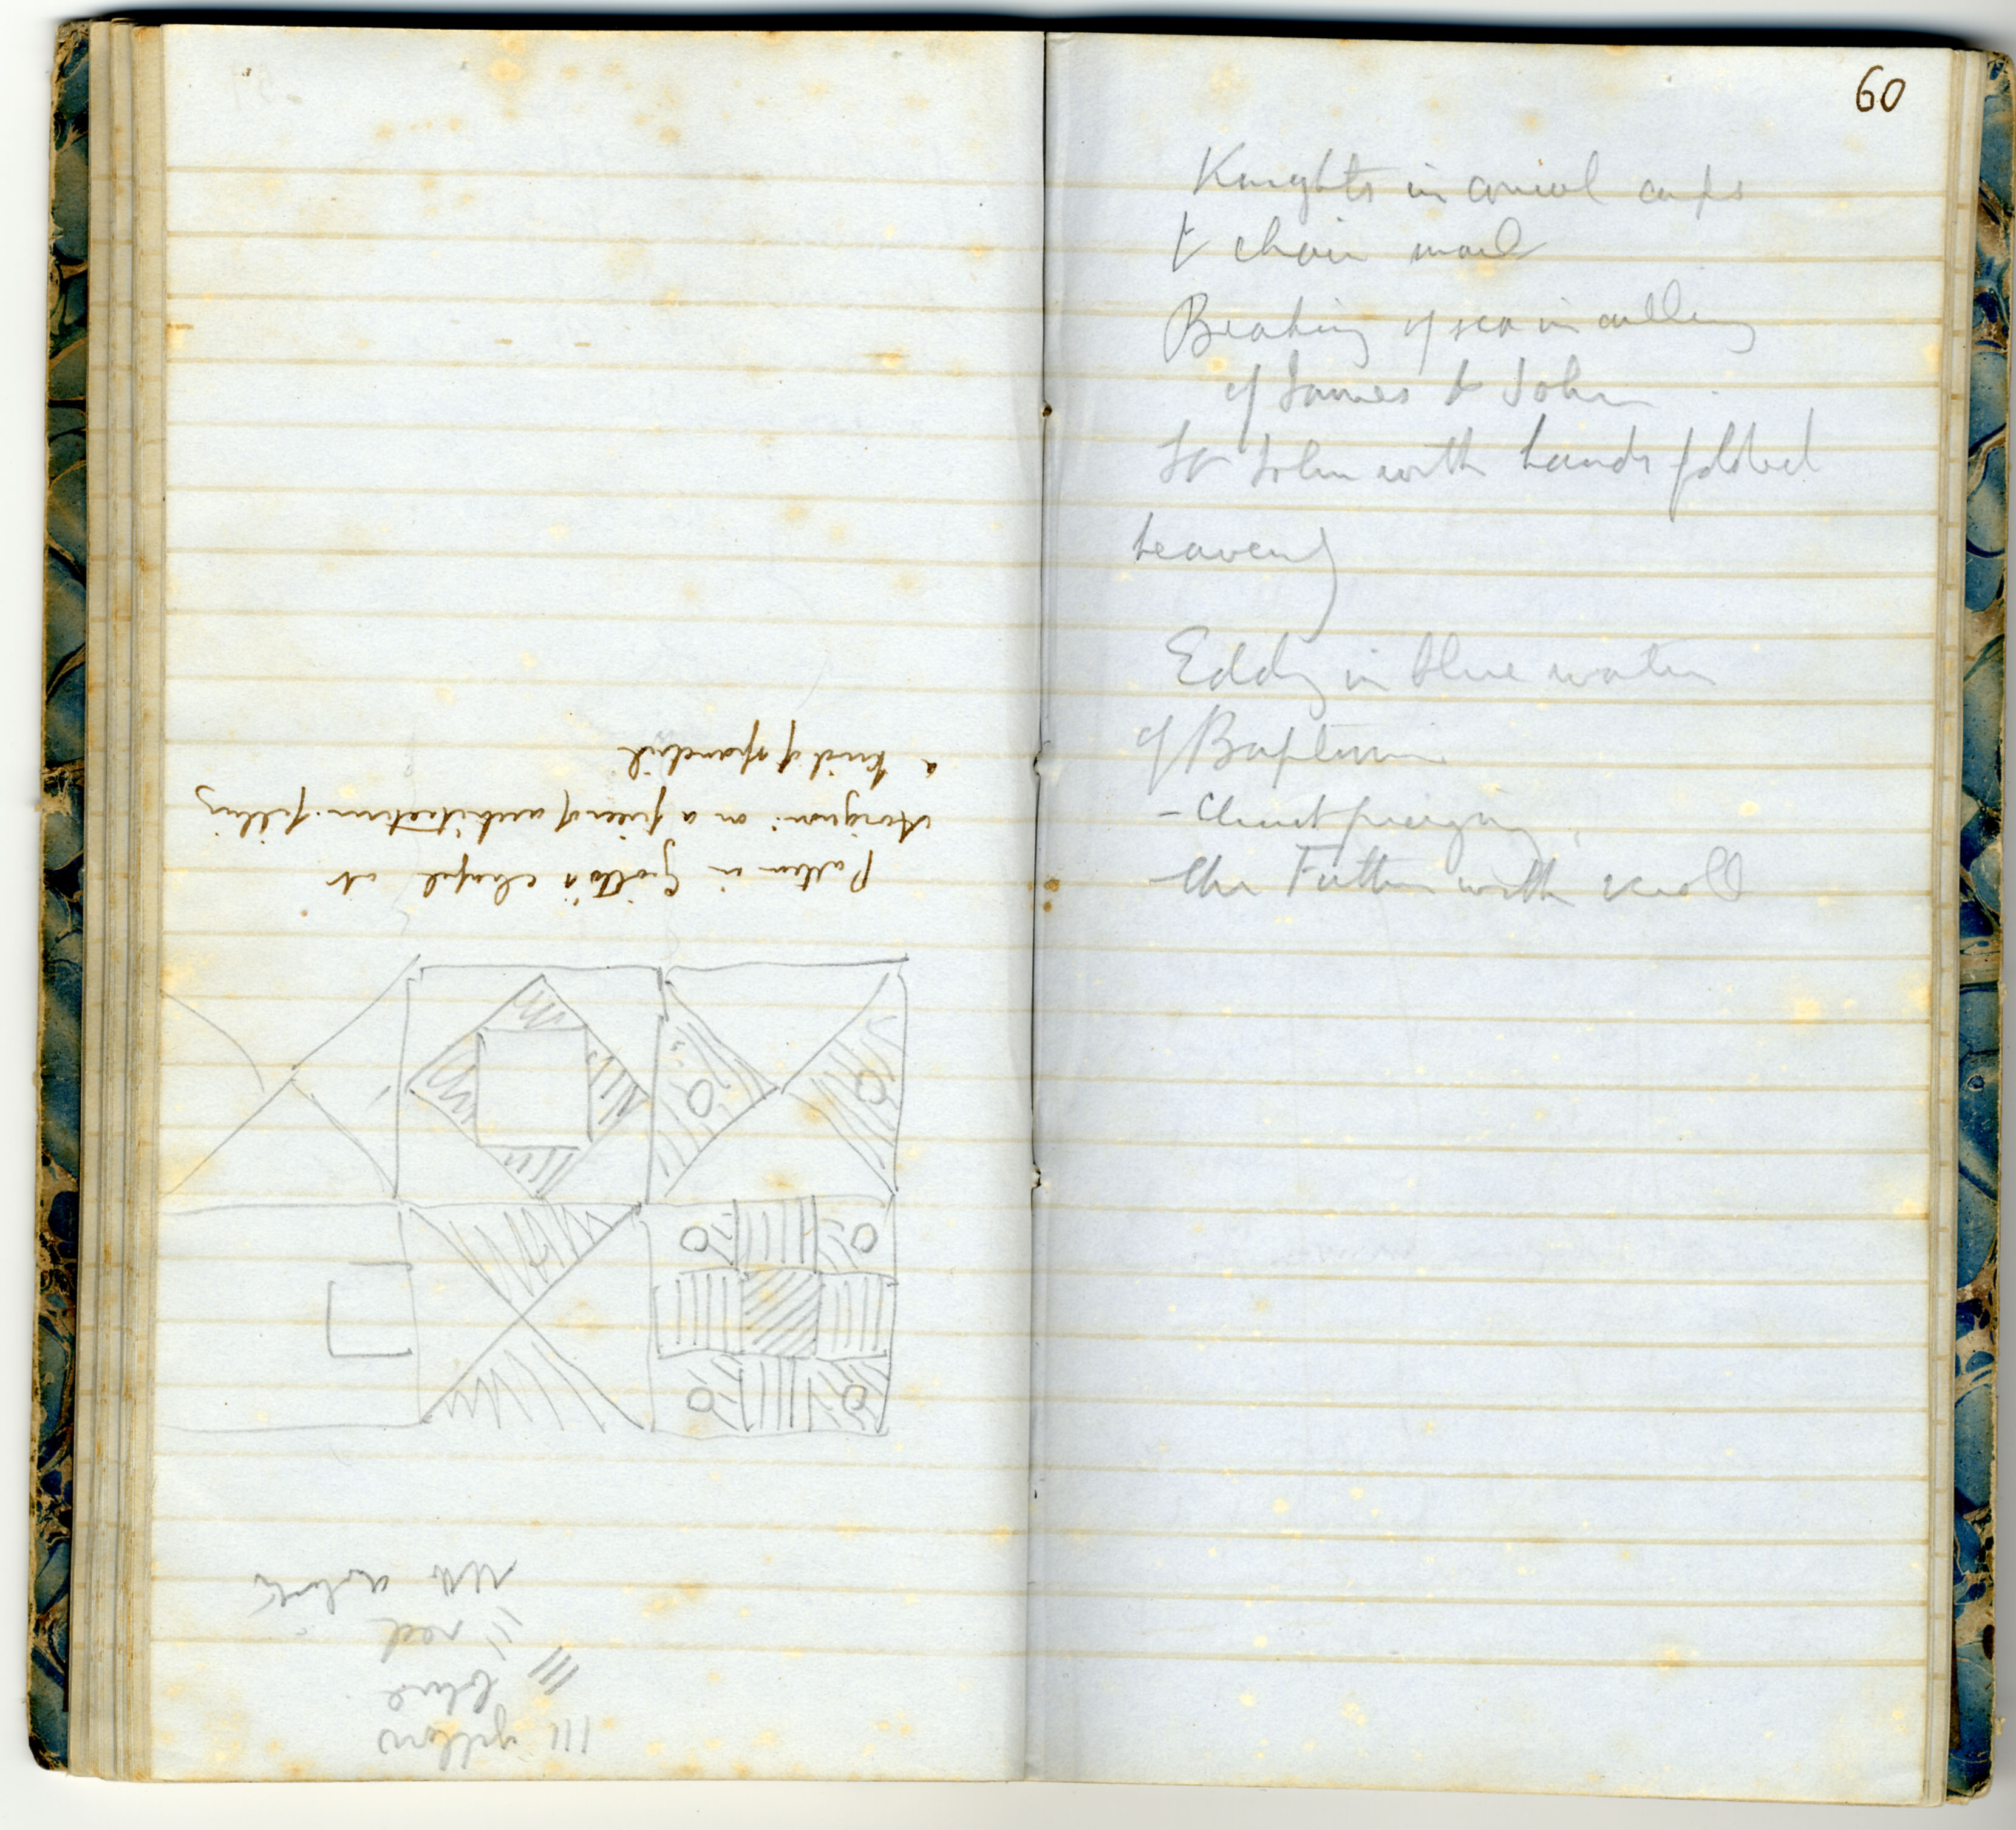 Pattern in Giotto's chapel at
Avignon: on a piece of architecture filling
a kind of spandril
yellow
blue
red
white
60
Knights in conical caps
& chain mail
Beating of sea in calling
of James & John
St John with hands folded
heavenly
Eddy in blue water
of Baptism
- Christ
the Father with scroll